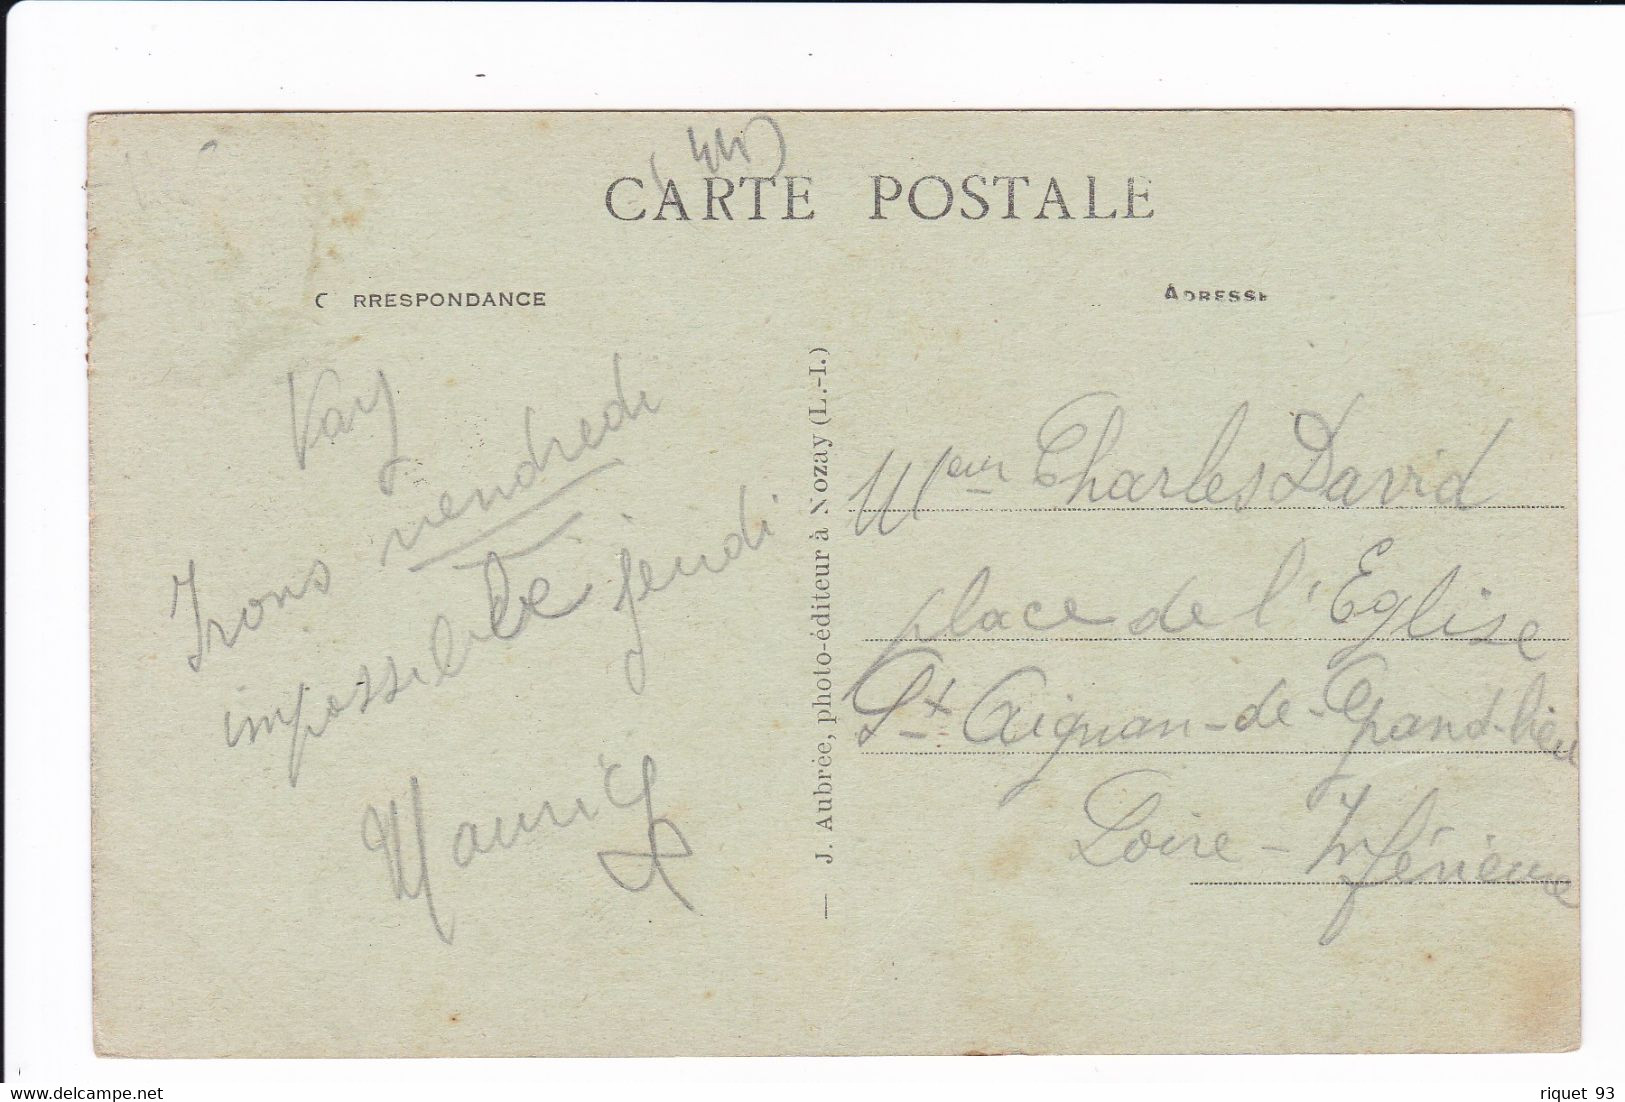 CARTE POSTALE
C RRESPONDANCE
ADRESSE
Vay
Irons vendredi
impossible jeudi
Maurice
— J. Aubrée, photo-éditeur à Nozay (L.-I.)
Charles David
place de l'Eglise
St Aignan-de-Grand-lieu
Loire-Inférieure
riquet 93